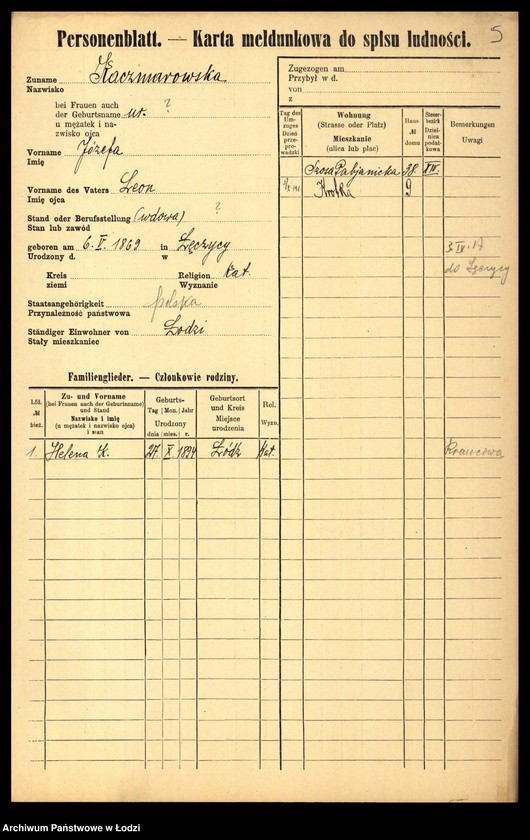 5
Personenblatt. — Karta meldunkowa do spisu ludności.
Zuname Kaczmarowska
Nazwisko
bei Frauen auch
der Geburtsname ur. ?
u mężatek i na-
zwisko ojca
Vorname Józefa
Imię
Vorname des Vaters Leon
Imię ojca
Stand oder Berufsstellung (wdowa) ?
Stan lub zawód
geboren am 6. V. 1869 in Łęczycy
Urodzony d. w
Kreis Religion kat.
ziemi Wyznanie
Staatsangehörigkeit polska
Przynależność państwowa
Ständiger Einwohner von Łodzi
Stały mieszkaniec
Zugezogen am
Przybył w d.
von
z
Tag des Um-zuges Dzień prze-prowadzki
Wohnung (Strasse oder Platz) Mieszkanie (ulica lub plac)
Haus № domu
Steuer-bezirk Dziel-nica podat-kowa
Bemerkungen Uwagi
Szosa Pabjanicka 38. XIV.
Krótka 9
3 IV. 17
do Łęczycy
Familienglieder. — Członkowie rodziny.
Lfd. № bież.
Zu- und Vorname (bei Frauen auch der Geburtsname) und Stand Nazwisko i imię (u mężatek i nazwisko ojca) i stan
Geburts- Tag Mon. Jahr Urodzony dnia mies. r.
Geburtsort und Kreis Miejsce urodzenia
Rel. Wyzn.
1. Helena K. 27. X. 1894 Łódź kat. Krawcowa
Archiwum Państwowe w Łodzi